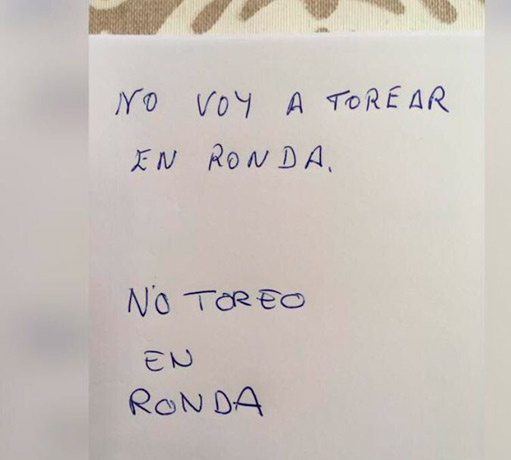 NO VOY A TOREAR
EN RONDA.
NO TOREO
EN
RONDA